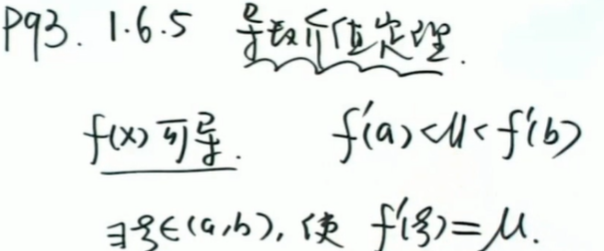 P93. 1.6.5 导数介值定理.
f(x) 可导. f'(a)<μ<f'(b)
∃ξ∈(a,b), 使 f'(ξ)=μ.